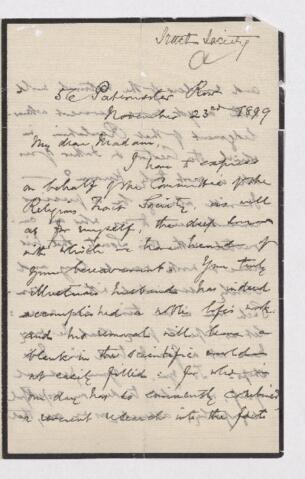 Tract Society
56 Paternoster Row
November 23rd 1899
My dear Madam,
I have to express
on behalf of the Committee of the
Religious Tract Society, as well
as for myself, the deep sorrow
with which we have heard of
your bereavement. Your truly
illustrious husband has indeed
accomplished a noble life's work
and his removal will leave a
blank in the scientific world
not easily filled: for who in
our day has so eminently combined
a reverent research into the facts